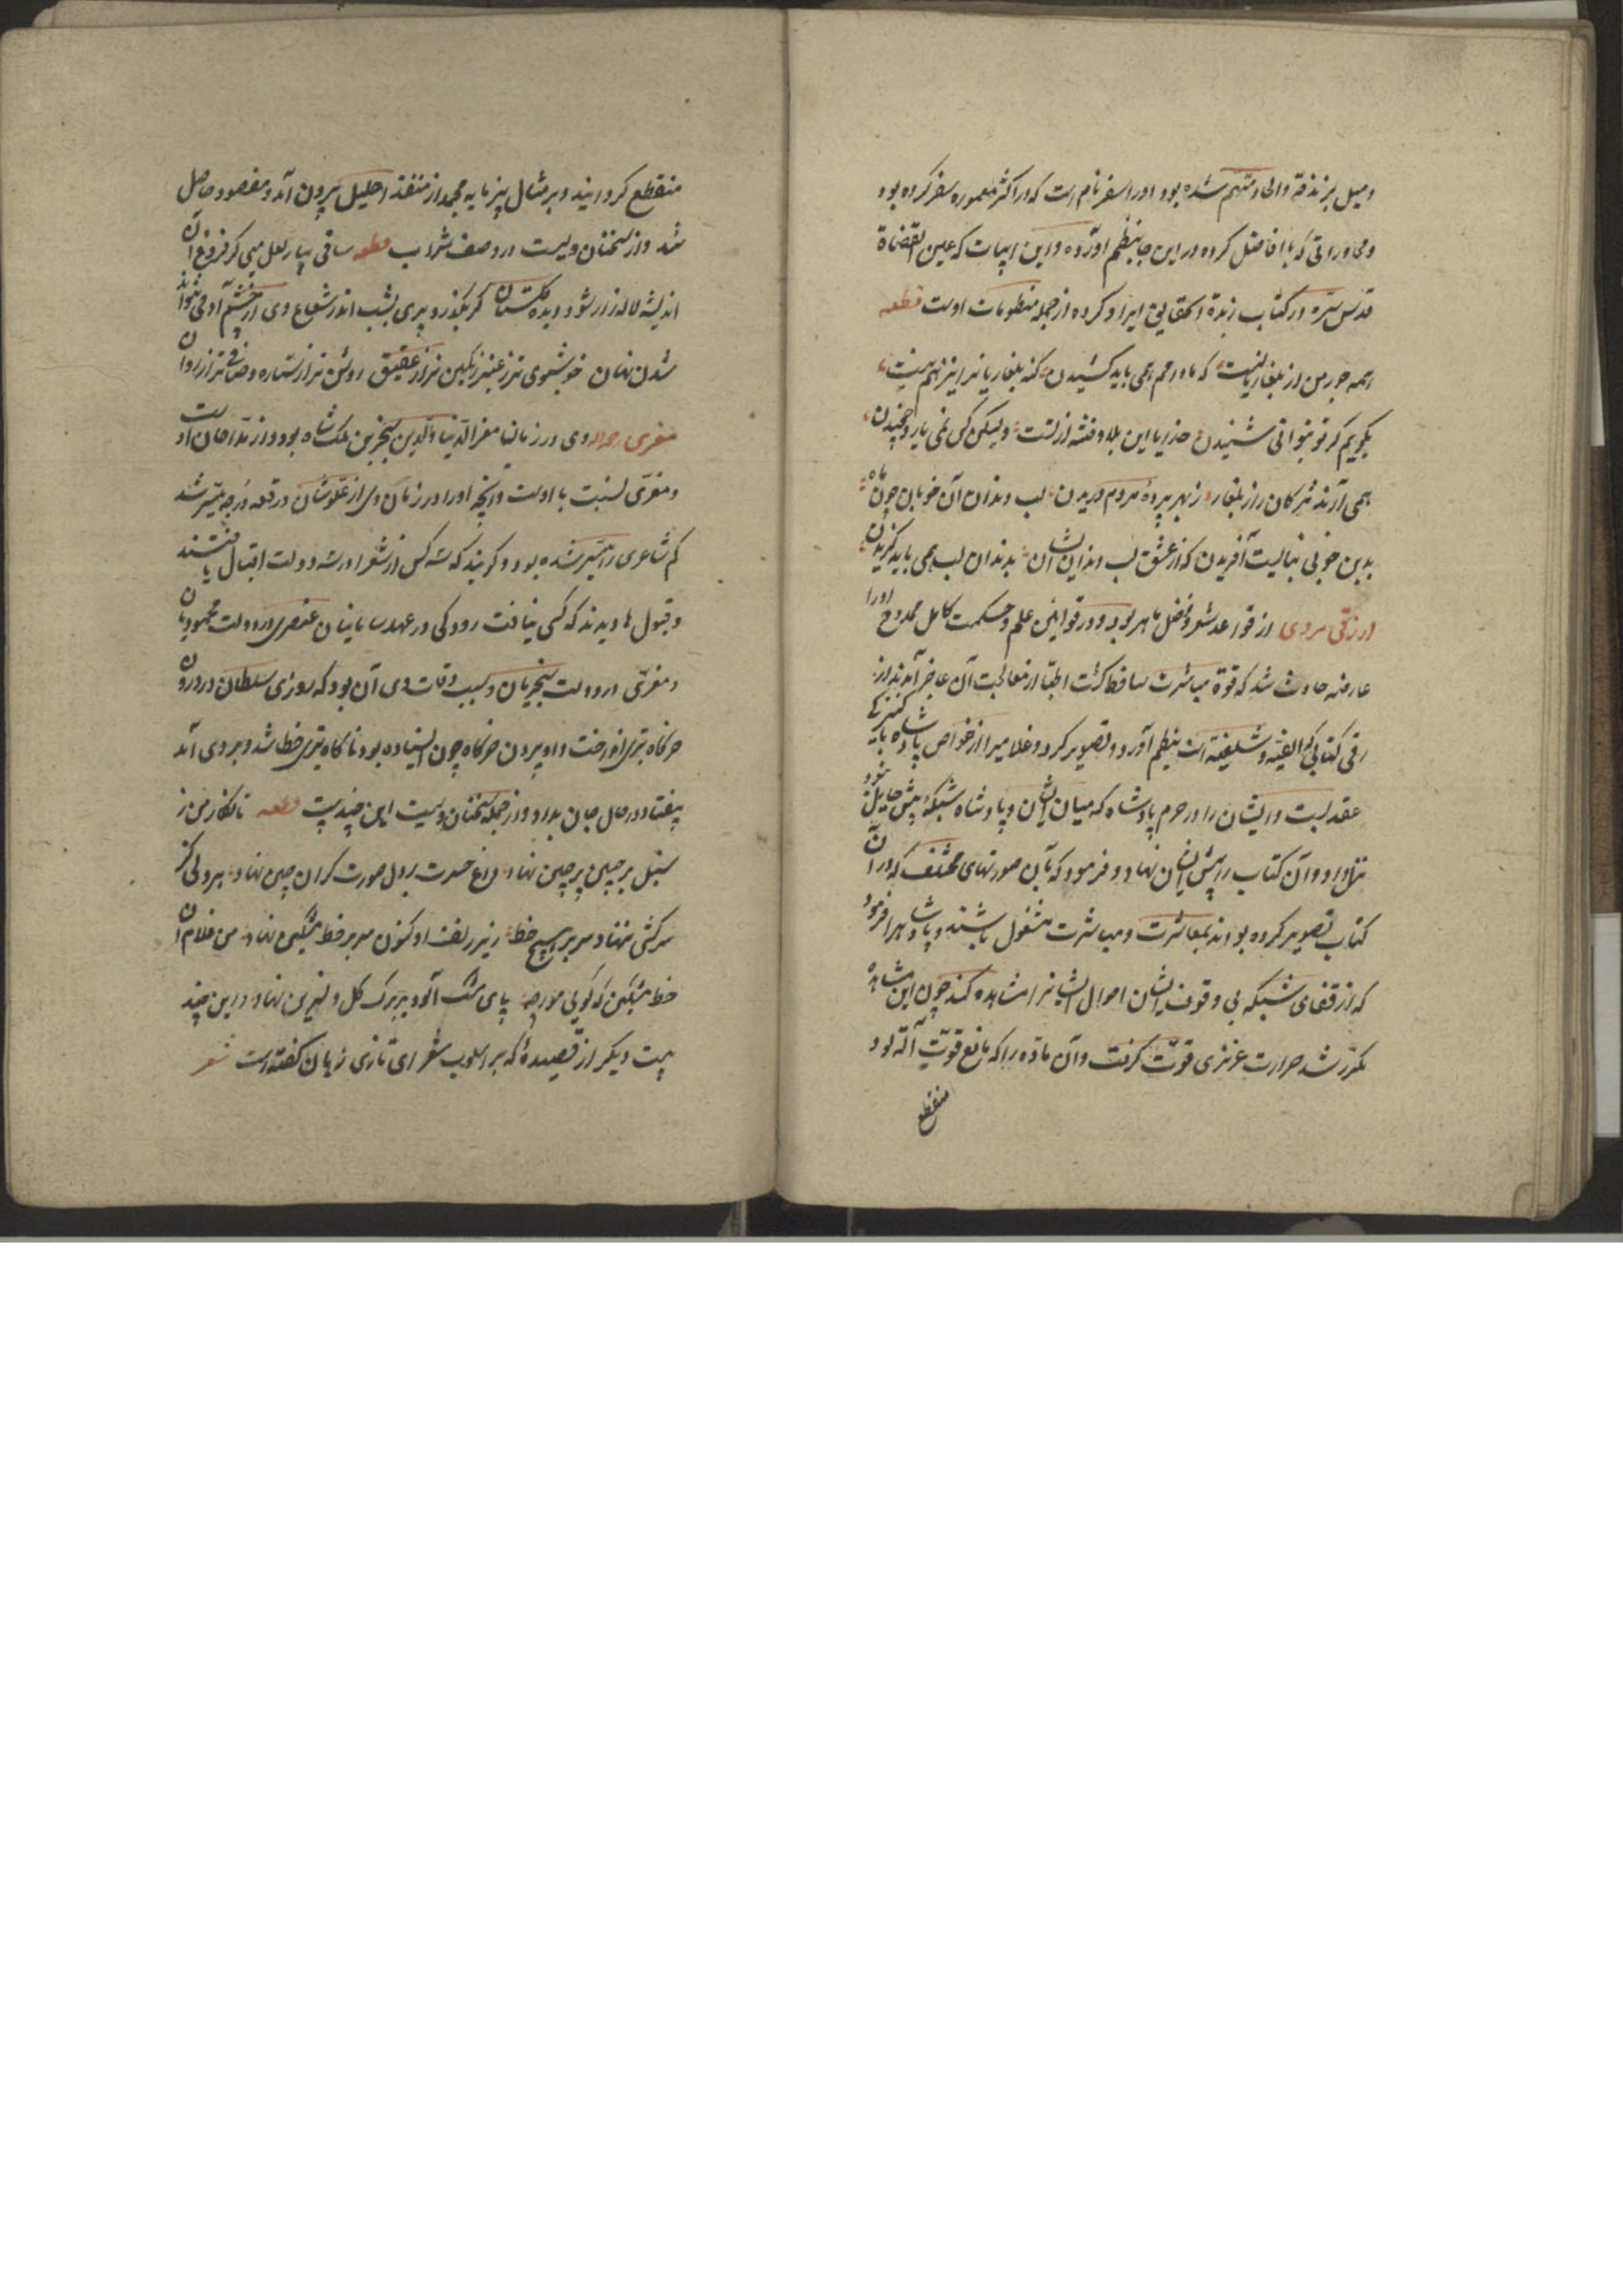 و میل بزندقه و الحاد متهم شده بود او را سفرنامه است که در اکثر معموره سفر کرده بود
و محاوراتی که با افاضل کرده در این جا بنظم آورده و این ابیات که عین القضاة
قدس سره در کتاب زبدة الحقایق ایراد کرده از جمله منظومات اوست قطعه
همه جور من از بلغاریانست که مادامم همی باید کشیدن گنه بلغاریانرا نیز هم نیست
بگویم گر تو بتوانی شنیدن خدایا این بلا و فتنه از تست ولیکن کس نمی یارد چخیدن
همی آرند ترکان را ز بلغار ز بهر پرده مردم دریدن لب و دندان آن خوبان چون ماه
بدین خوبی نبایست آفریدن که از عشق لب و دندان ایشان بدندان لب همی باید گزیدن
ازرقی هروی از قواعد شعر و فضل ماهر بود و در قوانین علم و حکمت کامل ممدوح او را
عارضه حادث شد که قوة مباشرت ساقط گشت اطبا از معالجت آن عاجز آمدند از
رقی کتابی که الفیه و شلفیه است بنظم آورد و تصویر کرد و غلامیرا از خواص پادشاه با کنیزکی
عقد بست و ایشان را در حرم پادشاه که میان ایشان و پادشاه شبکه بیش حایل نبود
و آن کتاب را پیش ایشان نهاد و فرمود که بآن صورتهای مختلف که در آن
کتاب تصویر کرده بودند بمعاشرت و مباشرت مشغول باشند و پادشاه را فرمود
که از قفای شبکه بی وقوف ایشان احوال ایشانرا مشاهده کند چون این مشاهده
مکرر شد حرارت غریزی قوت گرفت و آن ماده را که مانع قوت آلة بود
منقطع
منقطع گردانید و بر مثال پنیر مایه منجمد از منفذ احلیل بیرون آمد و مقصود حاصل
شد و از سخنان ویست در وصف شراب قطعه ساقی بیار لعل میی کز فروغ آن
اندیشه لاله زار شود دیده گلستان گر بگذرد پری بشب اندر شعاع وی از چشم آدمی نتواند
شدن نهان خوشبوی تر ز عنبر رنگین تر از عقیق روشن تر از ستاره و صافی تر از روان
معزی وی در زمان معز الدنیا و الدین سنجر بن ملک شاه بود و از مداحان اوست
و معزی نسبت با اوست و آنچه او را در زمان وی از علو شان و رفعه درجه میسر شد
کم شاعری را میسر شده بود و گویند که سه کس از شعرا در سه دولت اقبال یافتند
و قبول ها دیدند که کس نیافت رودکی در عهد سامانیان عنصری در دولت محمودیان
و معزی در دولت سنجریان و سبب وفات وی آن بود که روزی سلطان در درون
خرگاه تیر می انداخت و او بیرون خرگاه چون ایستاده بود ناگاه تیری خطا شد و بر وی آمد
بیفتاد در حال جان بداد و از جمله سخنان ویست این چند بیت قطعه تا نگار من ز
سنبل بر چمن پرچین نهاد داغ حسرت بر دل صورت گران چین نهاد هر دلی کز
سرکشی ننهاد سر بر هیچ خط زیر زلف او کنون سر بر خط مشکین نهاد من غلام آن
خط مشکین که گویی مورچه پای مشک آلود بر برگ گل و نسرین نهاد و این چند
بیت دیگر از قصیدهٔ که بر اسلوب شعرای تازی زبان گفته است شعر